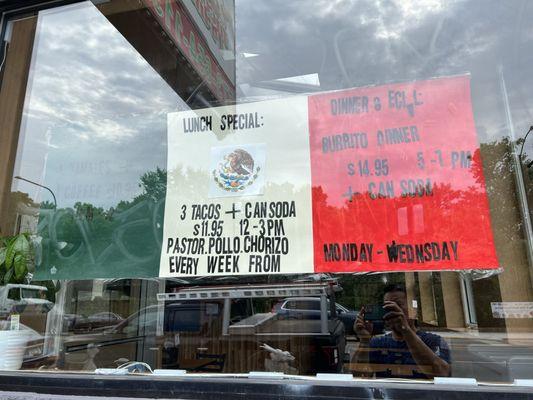 LUNCH SPECIAL:
3 TACOS + CAN SODA
$11.95 12-3PM
PASTOR.POLLO.CHORIZO
EVERY WEEK FROM
DINNER S ECIAL:
BURRITO DINNER
$14.95 5-7PM
+ CAN SODA
MONDAY-WEDNSDAY